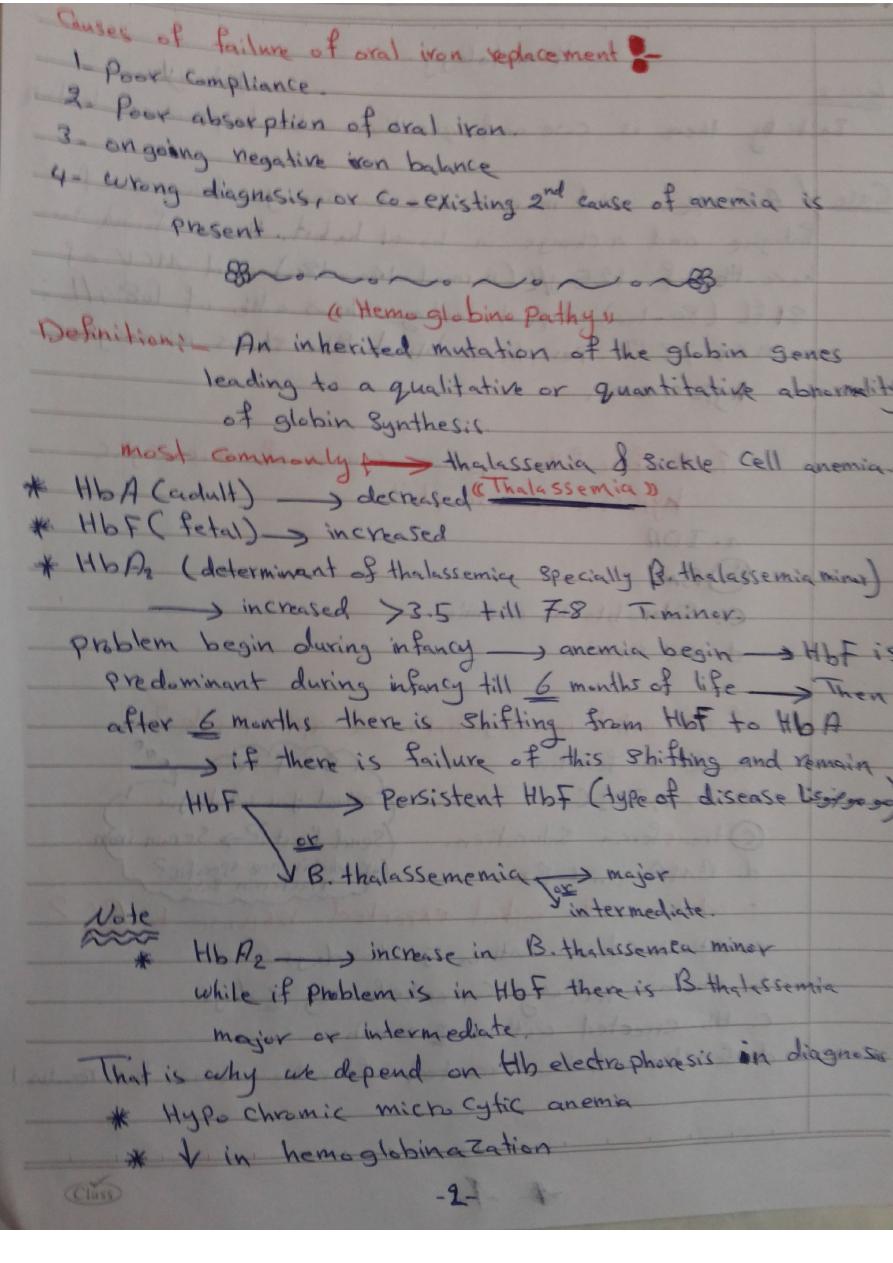 Causes of failure of oral iron replacement :-
1- Poor compliance.
2- Poor absorption of oral iron.
3- ongoing negative iron balance
4- wrong diagnosis, or co-existing 2nd cause of anemia is
present.
« Hemoglobino pathy »
Definition:- An inherited mutation of the globin genes
leading to a qualitative or quantitative abnormalit
of globin synthesis.
most commonly → thalassemia & Sickle Cell anemia.
* HbA (adult) → decreased «Thalassemia»
* HbF (fetal) → increased
* HbA2 (determinant of thalassemia specially B.thalassemia minor)
→ increased >3.5 till 7-8 T.minor.
problem begin during infancy → anemia begin → HbF is
predominant during infancy till 6 months of life → Then
after 6 months there is shifting from HbF to HbA
→ if there is failure of this shifting and remain
HbF → Persistent HbF (type of disease
or
B. thalassememia → major
or
intermediate.
Note
* HbA2 → increase in B.thalassemea minor
while if problem is in HbF there is B.thalassemia
major or intermediate.
That is why we depend on Hb electrophoresis in diagnosis
* Hypo chromic micro cytic anemia
* ↓ in hemoglobinazation
Class
-2-